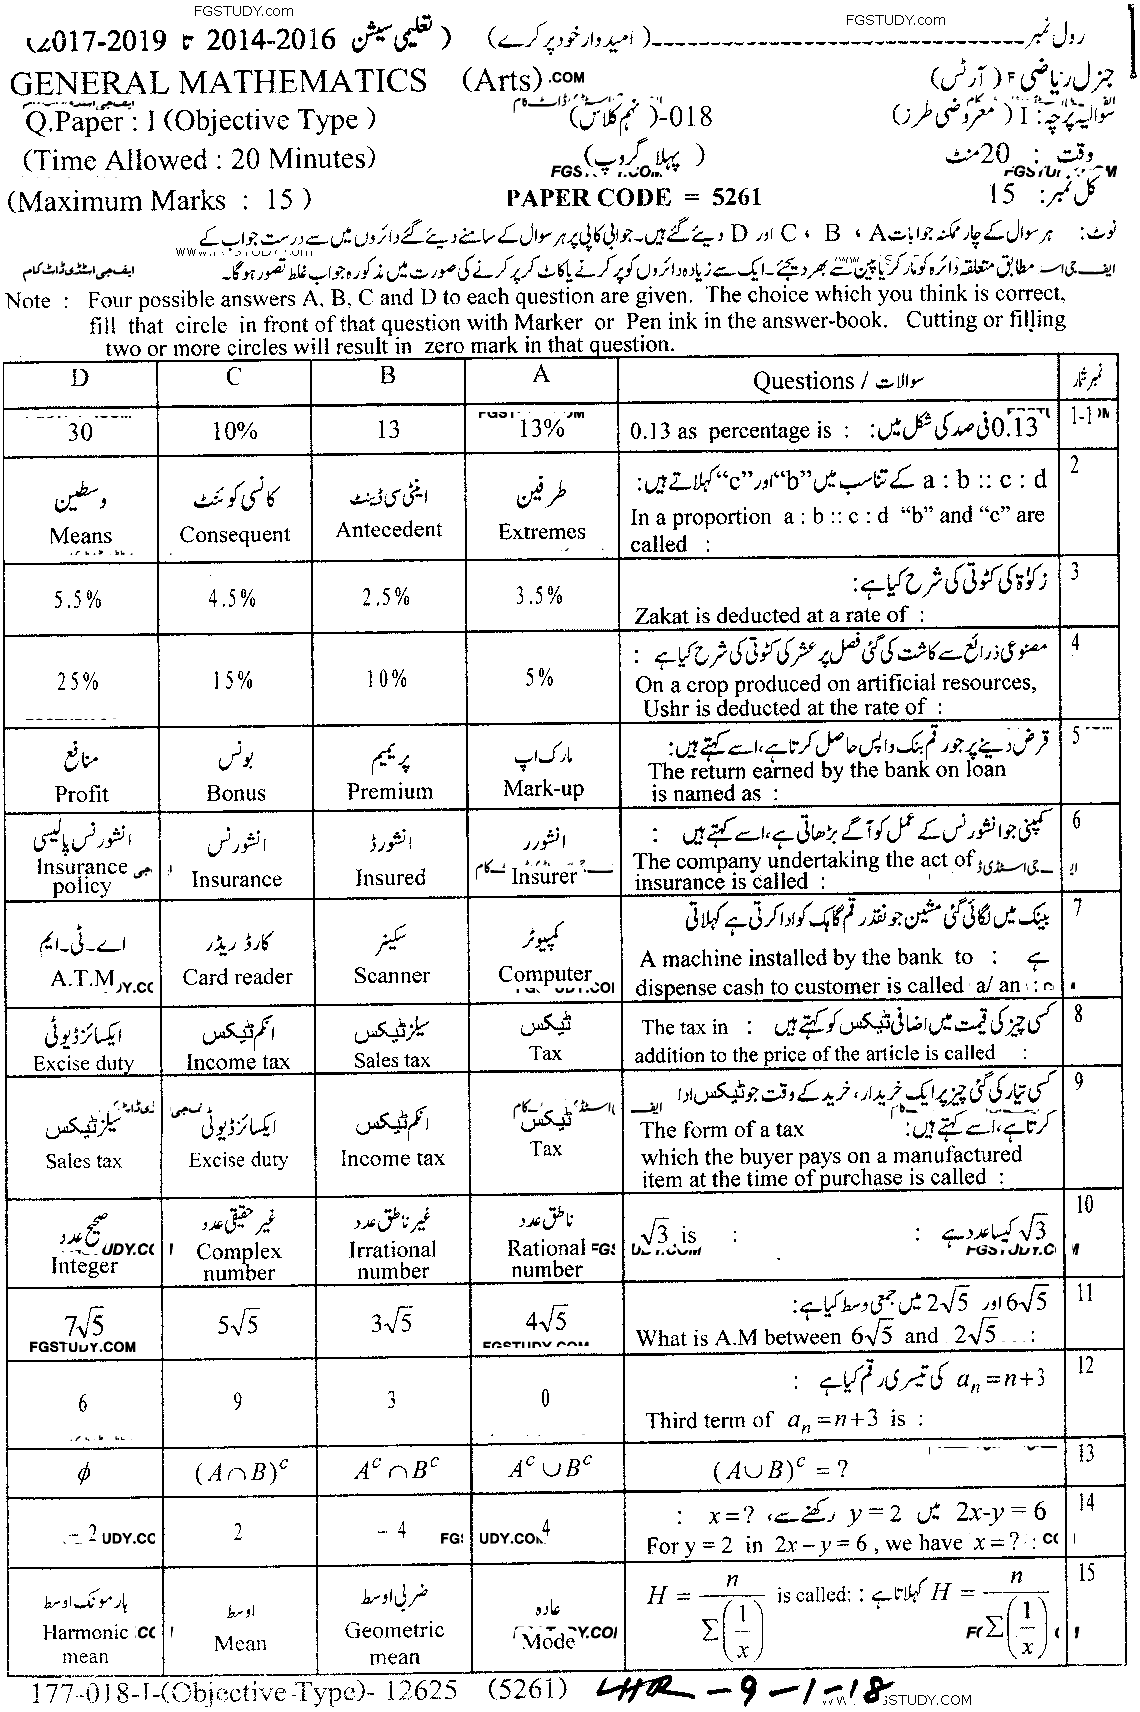 FGSTUDY.com
FGSTUDY.com
رول نمبر ------------------------------ (امیدوار خود پُر کرے) (تعلیمی سیشن 2014-2016 تا 2017-2019)
GENERAL MATHEMATICS (Arts) جنرل ریاضی (آرٹس)
Q.Paper : I (Objective Type ) 018-(نہم کلاس) سوالیہ پرچہ : I (معروضی طرز)
(Time Allowed : 20 Minutes) (پہلا گروپ) وقت : 20 منٹ
(Maximum Marks : 15 ) PAPER CODE = 5261 کل نمبر : 15
نوٹ : ہر سوال کے چار ممکنہ جوابات A ، B ، C اور D دیئے گئے ہیں۔ جوابی کاپی پر ہر سوال کے سامنے دیئے گئے دائروں میں سے درست جواب کے
مطابق متعلقہ دائرہ کو مارکر یا پین سے بھر دیجئے۔ ایک سے زیادہ دائروں کو پُر کرنے یا کاٹ کر پُر کرنے کی صورت میں مذکورہ جواب غلط تصور ہوگا۔
Note : Four possible answers A, B, C and D to each question are given. The choice which you think is correct,
fill that circle in front of that question with Marker or Pen ink in the answer-book. Cutting or filling
two or more circles will result in zero mark in that question.
D C B A Questions / سوالات نمبر شمار
30 10% 13 13% 0.13 as percentage is : 0.13 فی صد کی شکل میں: 1-1
وسطین کانسی کوئنٹ اینٹی سی ڈینٹ طرفین a : b :: c : d کے تناسب میں “b” اور “c” کہلاتے ہیں: 2
Means Consequent Antecedent Extremes In a proportion a : b :: c : d “b” and “c” are
called :
زکوٰۃ کی کٹوتی کی شرح کیا ہے: 3
5.5% 4.5% 2.5% 3.5% Zakat is deducted at a rate of :
مصنوعی ذرائع سے کاشت کی گئی فصل پر عشر کی کٹوتی کی شرح کیا ہے : 4
25% 15% 10% 5% On a crop produced on artificial resources,
Ushr is deducted at the rate of :
منافع بونس پریمیم مارک اپ قرض دینے پر جو رقم بنک واپس حاصل کرتا ہے، اسے کہتے ہیں: 5
Profit Bonus Premium Mark-up The return earned by the bank on loan
is named as :
انشورنس پالیسی انشورنس انشورڈ انشورر کمپنی جو انشورنس کے عمل کو آگے بڑھاتی ہے، اسے کہتے ہیں : 6
Insurance policy Insurance Insured Insurer The company undertaking the act of
insurance is called :
اے۔ٹی۔ایم کارڈ ریڈر سکینر کمپیوٹر بینک میں لگائی گئی مشین جو نقد رقم گاہک کو ادا کرتی ہے کہلاتی 7
A.T.M Card reader Scanner Computer A machine installed by the bank to : ہے
dispense cash to customer is called a/ an :
ایکسائز ڈیوٹی انکم ٹیکس سیلز ٹیکس ٹیکس The tax in : کسی چیز کی قیمت میں اضافی ٹیکس کو کہتے ہیں 8
Excise duty Income tax Sales tax Tax addition to the price of the article is called :
کسی تیار کی گئی چیز پر ایک خریدار، خرید کے وقت جو ٹیکس ادا 9
سیلز ٹیکس ایکسائز ڈیوٹی انکم ٹیکس ٹیکس The form of a tax کرتا ہے، اسے کہتے ہیں:
Sales tax Excise duty Income tax Tax which the buyer pays on a manufactured
item at the time of purchase is called :
صحیح عدد غیر حقیقی عدد غیر ناطق عدد ناطق عدد √3 is : √3 کیسا عدد ہے : 10
Integer Complex number Irrational number Rational number
6√5 اور 2√5 میں جمعی وسط کیا ہے: 11
7√5 5√5 3√5 4√5 What is A.M between 6√5 and 2√5 :
FGSTUDY.COM
aₙ=n+3 کی تیسری رقم کیا ہے : 12
6 9 3 0 Third term of aₙ=n+3 is :
ϕ (A∩B)ᶜ Aᶜ∩Bᶜ Aᶜ∪Bᶜ (A∪B)ᶜ = ? 13
2x-y=6 میں y=2 رکھنے سے، x=? : 14
- 2 2 - 4 4 For y = 2 in 2x – y = 6 , we have x = ? :
ہارمونک اوسط اوسط ضربی اوسط عادہ H = n / Σ(1/x) is called: : کہلاتا ہے H = n / Σ(1/x) 15
Harmonic mean Mean Geometric mean Mode
177-018-I-(Objective Type)- 12625 (5261) LHR -9-1-18